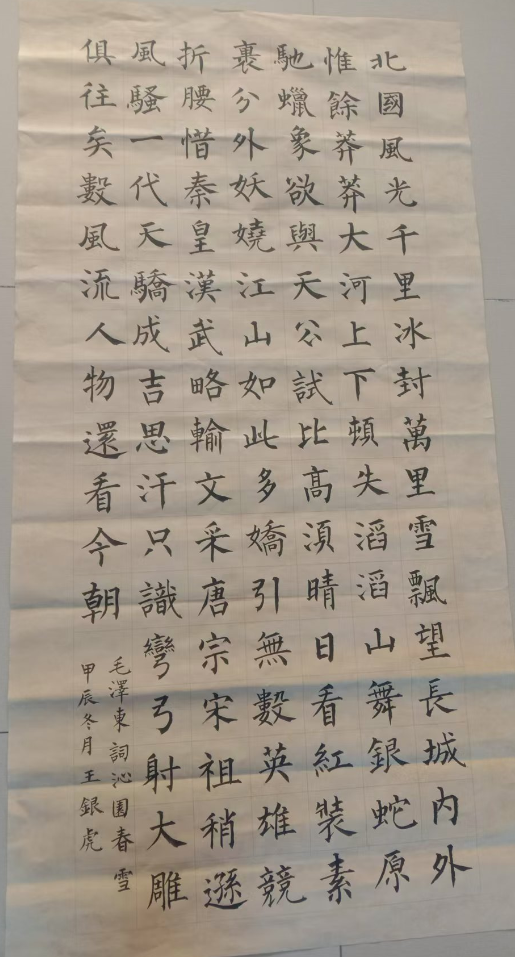 北國風光千里冰封萬里雪飄望長城內外
惟餘莽莽大河上下頓失滔滔山舞銀蛇原
馳蠟象欲與天公試比高須晴日看紅裝素
裹分外妖嬈江山如此多嬌引無數英雄競
折腰惜秦皇漢武略輸文采唐宗宋祖稍遜
風騷一代天驕成吉思汗只識彎弓射大雕
俱往矣數風流人物還看今朝
毛澤東詞沁園春雪
甲辰冬月王銀虎